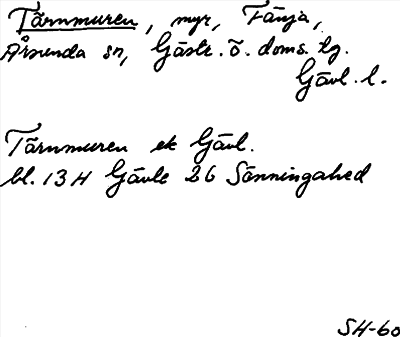 Tärnmuren, myr, Fänja,
Årsunda sn, Gästr. ö. doms. tg.
Gävl. l.
Tärnmuren ek Gävl.
bl. 13 H Gävle 26 Sönningahed
SH-60